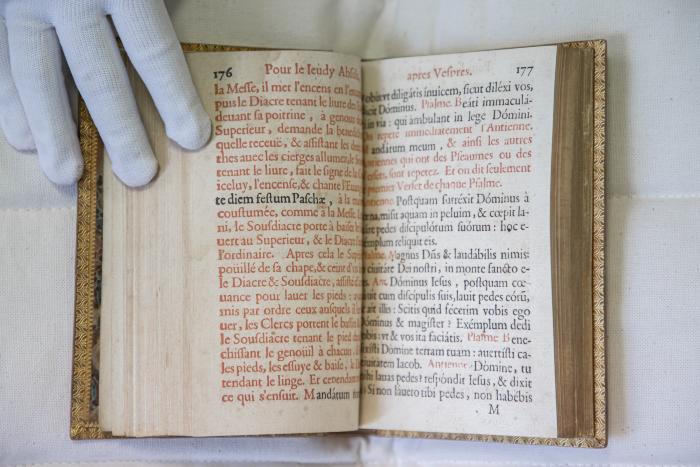 176 Pour le Ieudy Abso
la Messe, il met l'encens en l'en
puis le Diacre tenant le liure des
deuant sa poitrine, à genoux
Superieur, demande la benedi
quelle receuë, & assistant les d
thes auec les cierges allumez, le So
tenant le liure, fait le signe de la C
iceluy, l'encense, & chante l'Euan
te diem festum Paschæ, à la m
coustumée, comme à la Messe. L
ni, le Sousdiacre porte à baiser
uert au Superieur, & le Diacr
l'ordinaire. Apres cela le Supe
poüillé de sa chape, & ceint d'un
le Diacre & Sousdiacre, assisté
uance pour lauer les pieds:
mis par ordre ceux ausquels il
uer, les Clercs portent le bassin
le Sousdiacre tenant le pied
chissant le genoüil à chacun,
les pieds, les essuye & baise, le
tendant le linge. Et cependant
ce qui s'ensuit. Mandátum
apres Vespres. 177
vobis vt diligátis inuicem, sicut diléxi vos,
dicit Dóminus. Psalme. Beáti immaculá-
in via: qui ambulant in lege Dómini.
On repete immediatement l'Antienne.
Mandátum meum, & ainsi les autres
Antiennes qui ont des Pseaumes ou des
Versets, sont repetez. Et on dit seulement
premier Verset de chaque Psalme.
Postquam surréxit Dóminus à
cœna, misit aquam in peluim, & cœpit la-
uáre pedes discipulórum suórum: hoc e-
xémplum relíquit eis.
Psalme. Magnus Dñs & laudábilis nimis:
in ciuitáte Dei nostri, in monte sancto e-
Ant. Dóminus Iesus, postquam cœ-
náuit cum discípulis suis, lauit pedes eórũ,
ait illis: Scitis quid fécerim vobis ego
Dóminus & magister? Exémplum dedi
vobis: vt & vos ita faciátis. Psalme. Bene-
dixísti Domine terram tuam: auertísti ca-
ptiuitátem Iacob. Antienne. Dòmine, tu
mihi lauas pedes? respóndit Iesus, & dixit
Si non láuero tibi pedes, non habébis
M